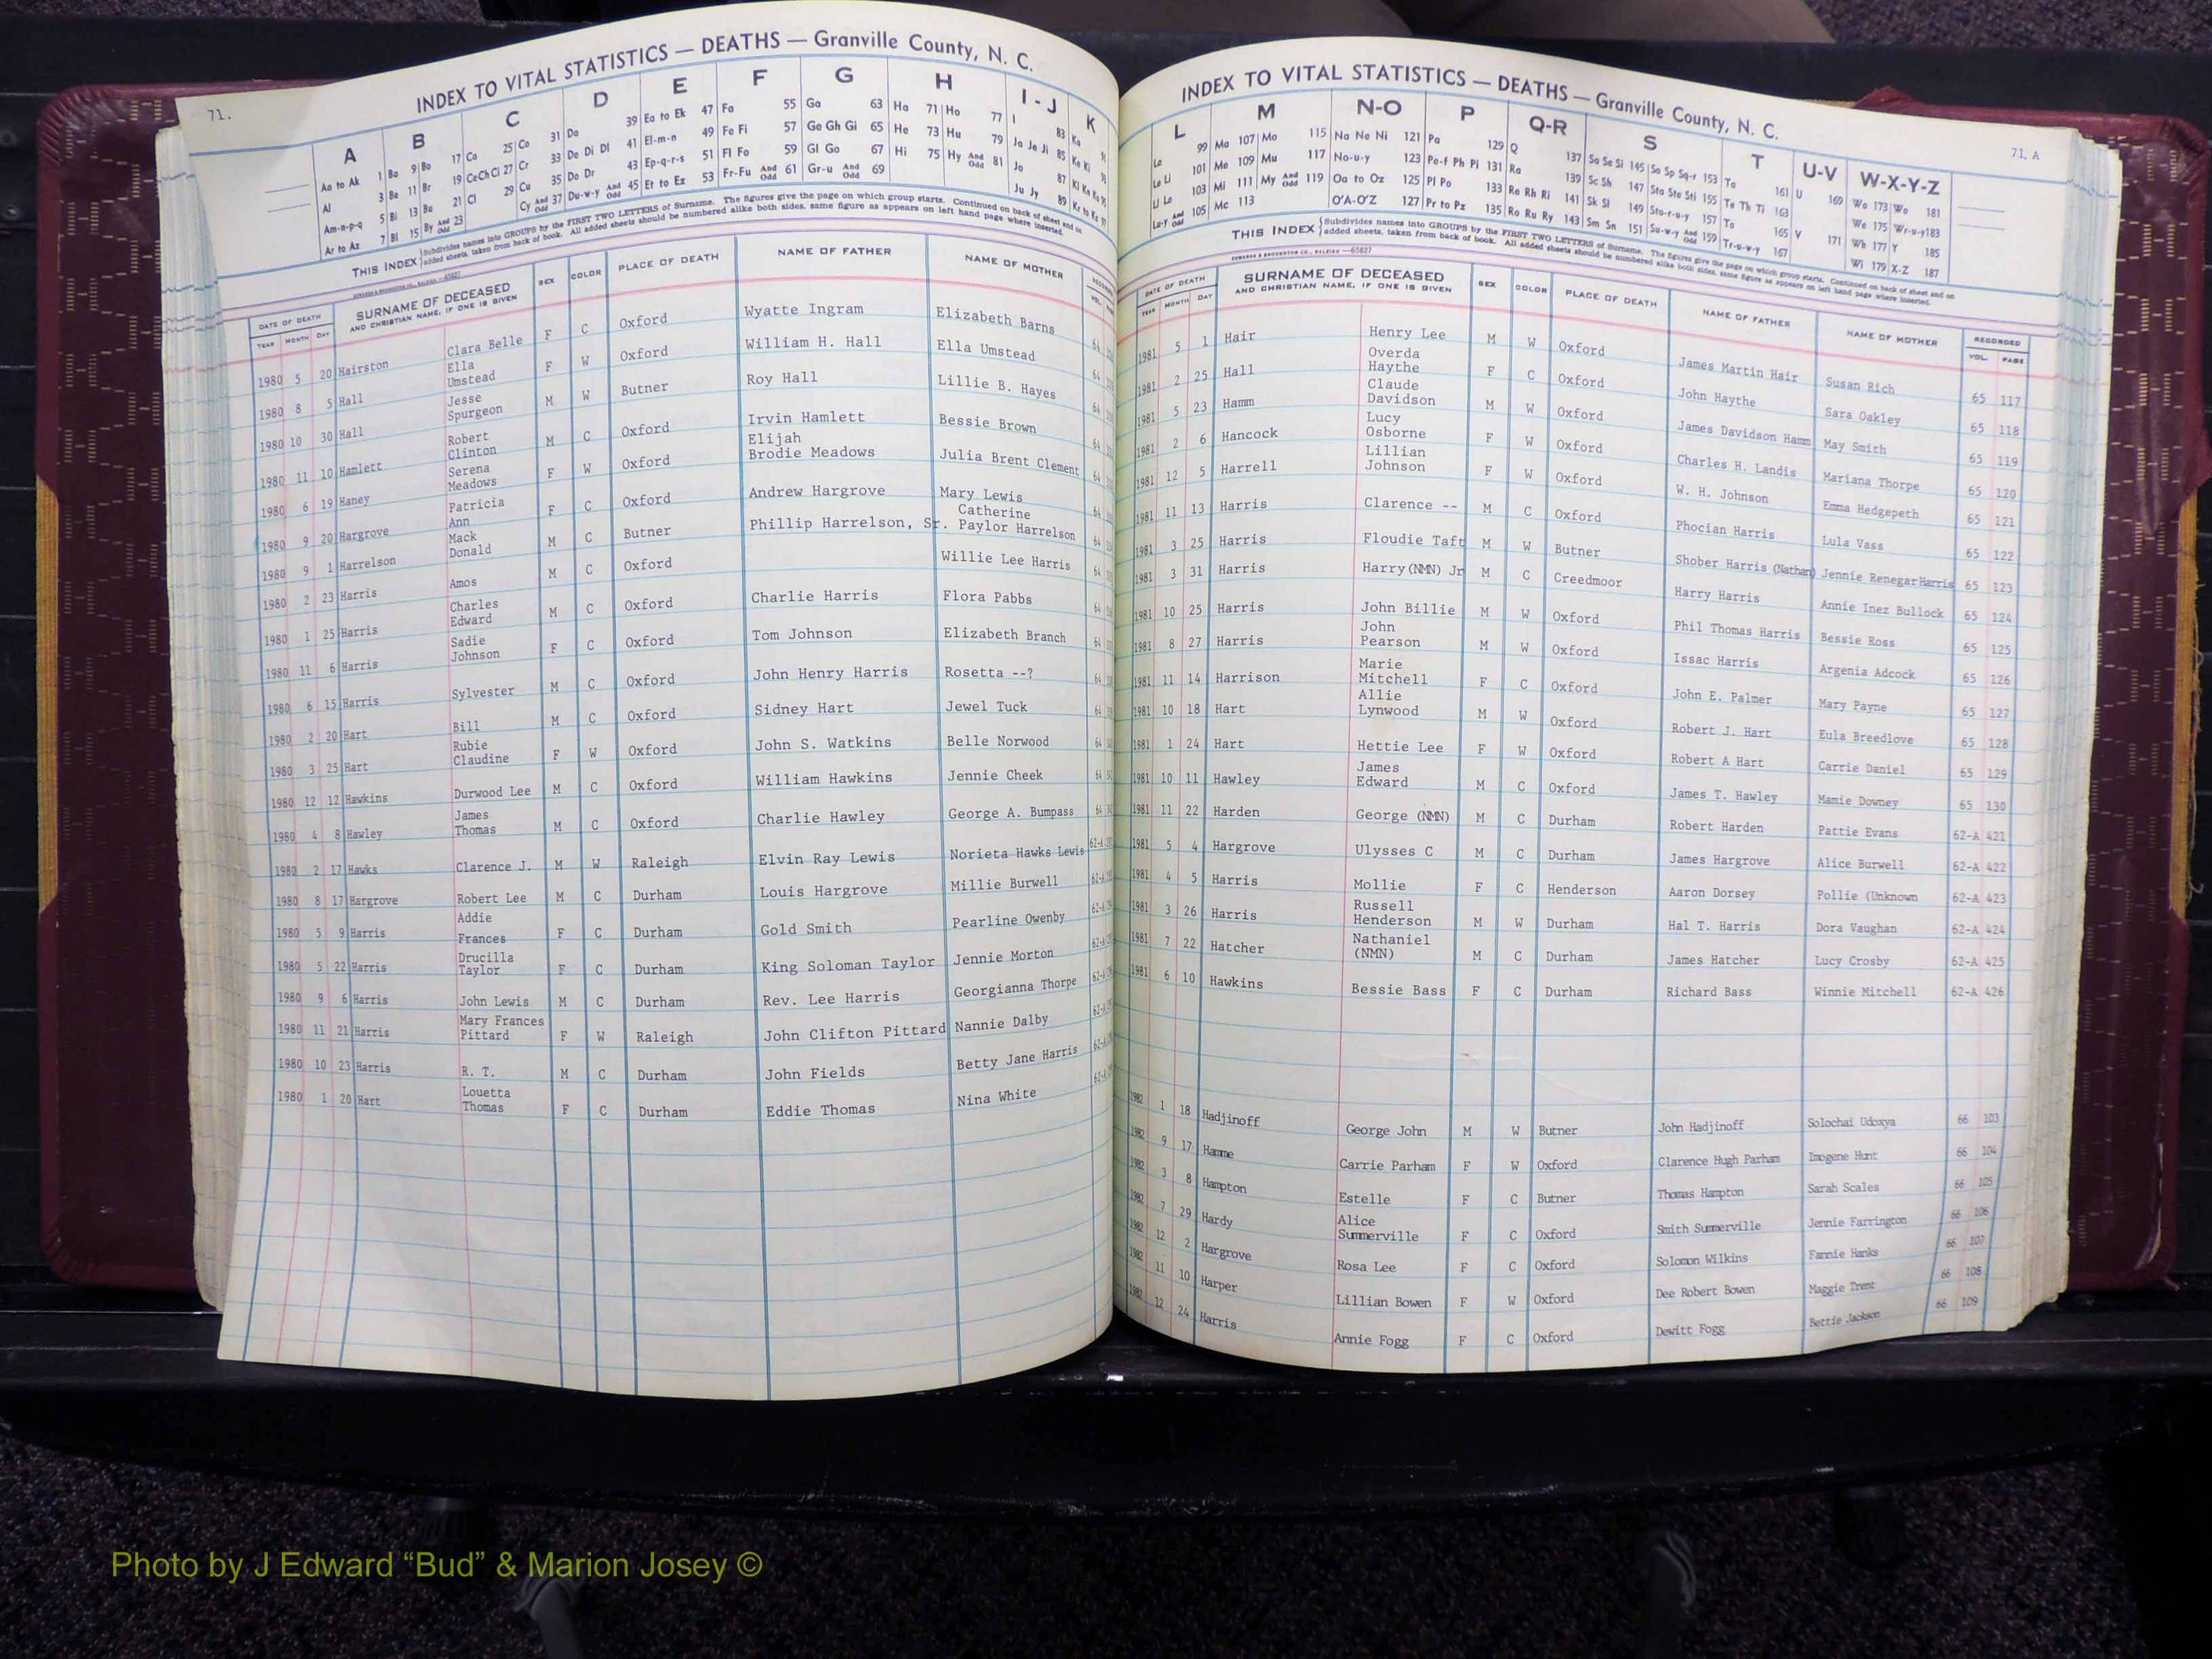 71.
INDEX TO VITAL STATISTICS — DEATHS — Granville County, N. C.
A B C D E F G H I-J K
Aa to Ak 1 Ba 9 Bo 17 Ca 25 Co 31 Da 39 Ea to Ek 47 Fa 55 Ga 63 Ha 71 Ho 77 I 83 Ka
Al 3 Be 11 Br 19 Ce Ch Ci 27 Cr 33 De Di Dl 41 El-m-n 49 Fe Fi 57 Ge Gh Gi 65 He 73 Hu 79 Ja Je Ji 85 Ke Ki
Am-n-p-q 5 Bi 13 Bu 21 Cl 29 Cu 35 Do Dr 43 Ep-q-r-s 51 Fl Fo 59 Gl Go 67 Hi 75 Hy And Odd 81 Jo 87
Ar to Az 7 Bl 15 By And Odd 23 Cy And Odd 37 Du-w-y And Odd 45 Et to Ez 53 Fr-Fu And Odd 61 Gr-u And Odd 69 Ju Jy 89
THIS INDEX Subdivides names into GROUPS by the FIRST TWO LETTERS of Surname. The figures give the page on which group starts. Continued on back of sheet and on
added sheets, taken from back of book. All added sheets should be numbered alike both sides, same figure as appears on left hand page where inserted.
DATE OF DEATH SURNAME OF DECEASED AND CHRISTIAN NAME, IF ONE IS GIVEN SEX COLOR PLACE OF DEATH NAME OF FATHER NAME OF MOTHER
YEAR MONTH DAY
1980 5 20 Hairston Clara Belle F C Oxford Wyatte Ingram Elizabeth Barns 64
1980 8 5 Hall Ella Umstead F W Oxford William H. Hall Ella Umstead 64
1980 10 30 Hall Jesse Spurgeon M W Butner Roy Hall Lillie B. Hayes 64
1980 11 10 Hamlett Robert Clinton M C Oxford Irvin Hamlett Bessie Brown 64
1980 6 19 Haney Serena Meadows F W Oxford Elijah Brodie Meadows Julia Brent Clement 64
1980 9 20 Hargrove Patricia Ann F C Oxford Andrew Hargrove Mary Lewis 64
1980 9 1 Harrelson Mack Donald M C Butner Phillip Harrelson, Sr. Catherine Paylor Harrelson 64
1980 2 23 Harris Amos M C Oxford Willie Lee Harris 64
1980 1 25 Harris Charles Edward M C Oxford Charlie Harris Flora Pabbs 64
1980 11 6 Harris Sadie Johnson F C Oxford Tom Johnson Elizabeth Branch 64
1980 6 15 Harris Sylvester M C Oxford John Henry Harris Rosetta --? 64
1980 2 20 Hart Bill M C Oxford Sidney Hart Jewel Tuck 64
1980 3 25 Hart Rubie Claudine F W Oxford John S. Watkins Belle Norwood 64
1980 12 12 Hawkins Durwood Lee M C Oxford William Hawkins Jennie Cheek 64
1980 4 8 Hawley James Thomas M C Oxford Charlie Hawley George A. Bumpass 64
1980 2 17 Hawks Clarence J. M W Raleigh Elvin Ray Lewis Norieta Hawks Lewis 62-A
1980 8 17 Hargrove Robert Lee M C Durham Louis Hargrove Millie Burwell 62-A
1980 5 9 Harris Addie Frances F C Durham Gold Smith Pearline Owenby 62-A
1980 5 22 Harris Drucilla Taylor F C Durham King Soloman Taylor Jennie Morton 62-A
1980 9 6 Harris John Lewis M C Durham Rev. Lee Harris Georgianna Thorpe 62-A
1980 11 21 Harris Mary Frances Pittard F W Raleigh John Clifton Pittard Nannie Dalby 62-A
1980 10 23 Harris R. T. M C Durham John Fields Betty Jane Harris 62-A
1980 1 20 Hart Louetta Thomas F C Durham Eddie Thomas Nina White 62-A
71. A
INDEX TO VITAL STATISTICS — DEATHS — Granville County, N. C.
L M N-O P Q-R S T U-V W-X-Y-Z
La 99 Ma 107 Mo 115 Na Ne Ni 121 Pa 129 Q 137 Sa Se Si 145 So Sp Sq-r 153 Ta 161 U 169 Wa 173 Wo 181
Le Li 101 Me 109 Mu 117 No-u-y 123 Pe-f Ph Pi 131 Ra 139 Sc Sh 147 Sta Ste Sti 155 Te Th Ti 163 We 175 Wr-u-y 183
Ll Lo 103 Mi 111 My And Odd 119 Oa to Oz 125 Pl Po 133 Re Rh Ri 141 Sk Sl 149 Sto-r-u-y 157 To 165 V 171 Wh 177 Y 185
Lu-y And Odd 105 Mc 113 O'A-O'Z 127 Pr to Pz 135 Ro Ru Ry 143 Sm Sn 151 Su-w-y And Odd 159 Tr-u-w-y 167 Wi 179 X-Z 187
THIS INDEX Subdivides names into GROUPS by the FIRST TWO LETTERS of Surname. The figures give the page on which group starts. Continued on back of sheet and on
added sheets, taken from back of book. All added sheets should be numbered alike both sides, same figure as appears on left hand page where inserted.
EDWARDS & BROUGHTON CO., RALEIGH —65827
DATE OF DEATH SURNAME OF DECEASED AND CHRISTIAN NAME, IF ONE IS GIVEN SEX COLOR PLACE OF DEATH NAME OF FATHER NAME OF MOTHER RECORDED
YEAR MONTH DAY VOL. PAGE
1981 5 1 Hair Henry Lee M W Oxford James Martin Hair Susan Rich 65 117
1981 2 25 Hall Overda Haythe F C Oxford John Haythe Sara Oakley 65 118
1981 5 23 Hamm Claude Davidson M W Oxford James Davidson Hamm May Smith 65 119
1981 2 6 Hancock Lucy Osborne F W Oxford Charles H. Landis Mariana Thorpe 65 120
1981 12 5 Harrell Lillian Johnson F W Oxford W. H. Johnson Emma Hedgepeth 65 121
1981 11 13 Harris Clarence -- M C Oxford Phocian Harris Lula Vass 65 122
1981 3 25 Harris Floudie Taft M W Butner Shober Harris (Nathan) Jennie Renegar Harris 65 123
1981 3 31 Harris Harry (NMN) Jr M C Creedmoor Harry Harris Annie Inez Bullock 65 124
1981 10 25 Harris John Billie M W Oxford Phil Thomas Harris Bessie Ross 65 125
1981 8 27 Harris John Pearson M W Oxford Issac Harris Argenia Adcock 65 126
1981 11 14 Harrison Marie Mitchell F C Oxford John E. Palmer Mary Payne 65 127
1981 10 18 Hart Allie Lynwood M W Oxford Robert J. Hart Eula Breedlove 65 128
1981 1 24 Hart Hettie Lee F W Oxford Robert A Hart Carrie Daniel 65 129
1981 10 11 Hawley James Edward M C Oxford James T. Hawley Mamie Downey 65 130
1981 11 22 Harden George (NMN) M C Durham Robert Harden Pattie Evans 62-A 421
1981 5 4 Hargrove Ulysses C M C Durham James Hargrove Alice Burwell 62-A 422
1981 4 5 Harris Mollie F C Henderson Aaron Dorsey Pollie (Unknown 62-A 423
1981 3 26 Harris Russell Henderson M W Durham Hal T. Harris Dora Vaughan 62-A 424
1981 7 22 Hatcher Nathaniel (NMN) M C Durham James Hatcher Lucy Crosby 62-A 425
1981 6 10 Hawkins Bessie Bass F C Durham Richard Bass Winnie Mitchell 62-A 426
1982 1 18 Hadjinoff George John M W Butner John Hadjinoff Solochai Udoxya 66 103
1982 9 17 Hamme Carrie Parham F W Oxford Clarence Hugh Parham Imogene Hunt 66 104
1982 3 8 Hampton Estelle F C Butner Thomas Hampton Sarah Scales 66 105
1982 7 29 Hardy Alice Summerville F C Oxford Smith Summerville Jennie Farrington 66 106
1982 12 2 Hargrove Rosa Lee F C Oxford Solomon Wilkins Fannie Hanks 66 107
1982 11 10 Harper Lillian Bowen F W Oxford Dee Robert Bowen Maggie Trent 66 108
1982 12 24 Harris Annie Fogg F C Oxford Dewitt Fogg Bettie Jackson 66 109
Photo by J Edward “Bud” & Marion Josey ©